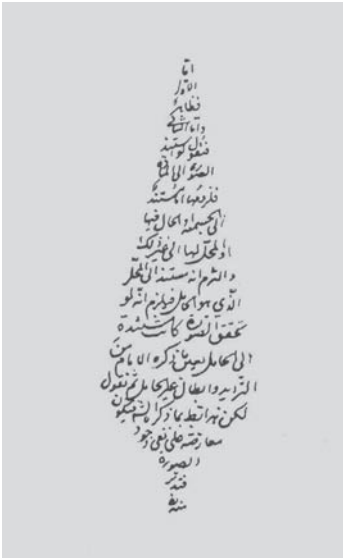 اما
الاول
فظاهر
واما الثانى
فنقول لو استند
الصورة الى المادة
فلزومها اما مستند
الى الجسمية او الحال فيها
او المحل لها الى غير ذلك
والتزم انه مستند الى المحل
الذى هو الحامل فيلزم انه لو
تحقق الصورة كانت مستندة
الى الحامل بعين ما ذكره الامام من
الترديد وابطال غير الحامل ثم نقول
لكن هذا باطل بما ذكر الشيخ فيكون
معارضة على نفى وجود
الصورة
فتدبر
منه